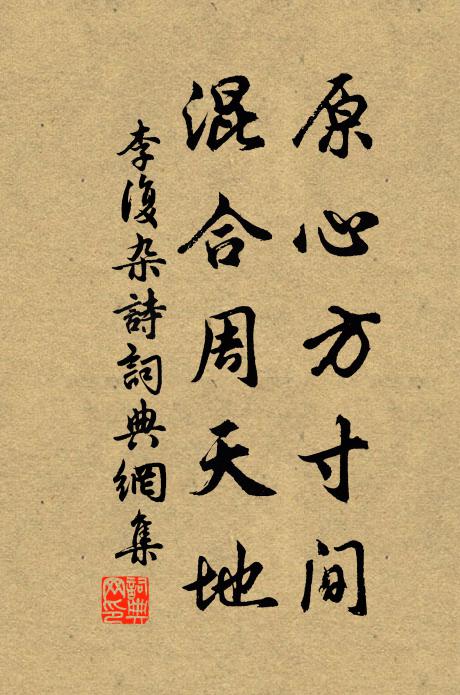 原心方寸间
混合周天地
李復杂詩詞典網集
詞典网印